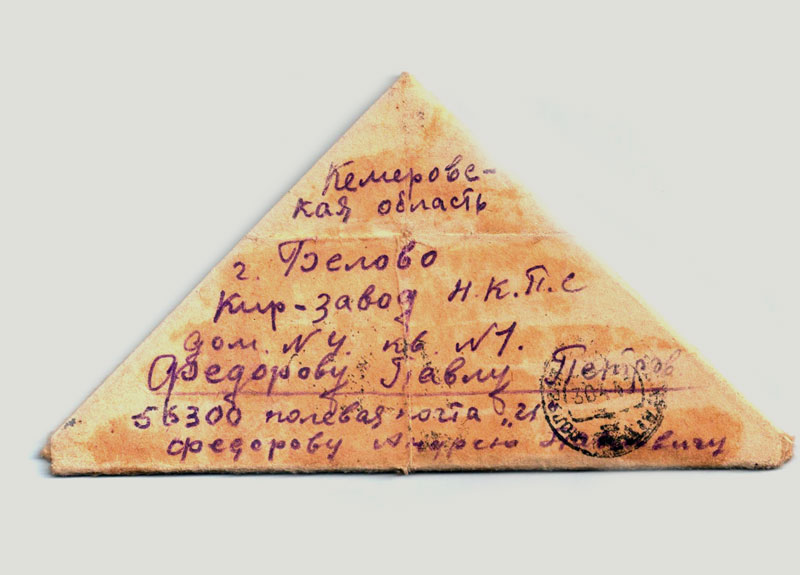 Кемеровс-
кая область
г. Белово
Кир-завод Н.К.П.С
дом. N 4. кв. N 1.
Федорову Павлу Петров
56300 полевая почта "И
Федорову Андрею Павловичу